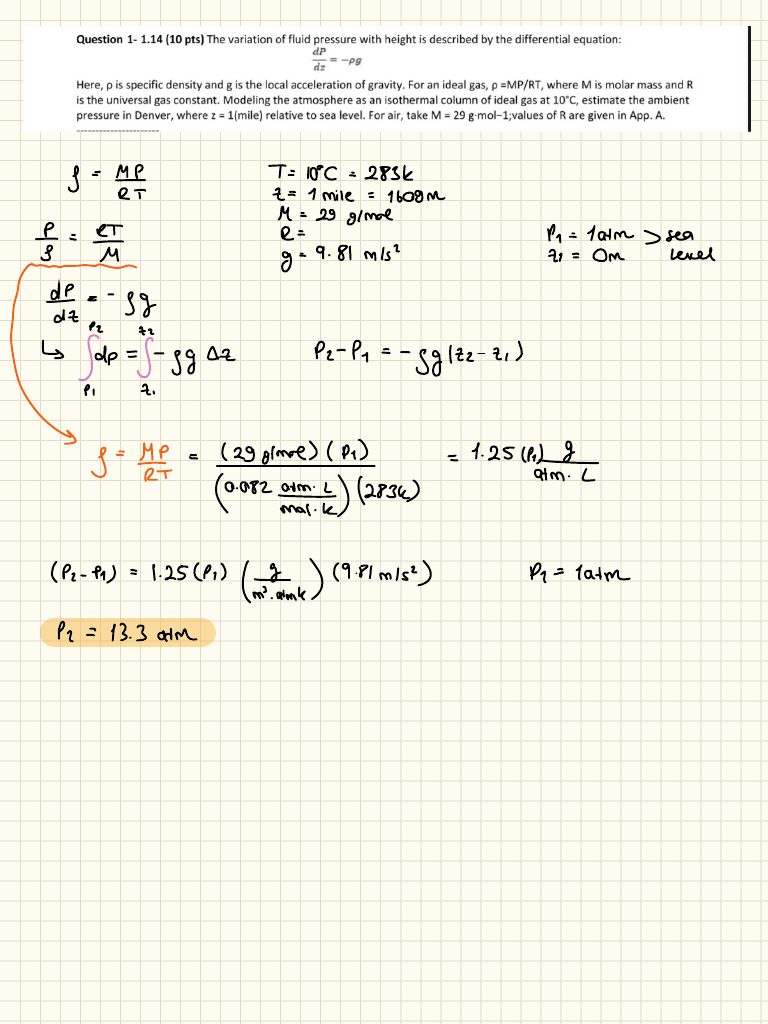 Question 1- 1.14 (10 pts) The variation of fluid pressure with height is described by the differential equation:
dP/dz = -ρg
Here, ρ is specific density and g is the local acceleration of gravity. For an ideal gas, ρ =MP/RT, where M is molar mass and R
is the universal gas constant. Modeling the atmosphere as an isothermal column of ideal gas at 10°C, estimate the ambient
pressure in Denver, where z = 1(mile) relative to sea level. For air, take M = 29 g·mol−1;values of R are given in App. A.
----------------------
ρ = MP/RT
T = 10°C = 283k
z = 1 mile = 1609m
M = 29 g/mol
R =
g = 9.81 m/s²
P/ρ = RT/M
P₁ = 1atm > sea level
z₁ = 0m
dP/dz = - ρg
↳ ∫_P₁^P₂ dp = ∫_z₁^z₂ - ρg Δz
P₂-P₁ = - ρg(z₂ - z₁)
ρ = MP/RT = (29 g/mol)(P₁) / (0.082 atm·L/mol·k)(283k) = 1.25 (P₁) g/atm·L
(P₂-P₁) = 1.25(P₁) (g/m³·atmk) (9.81 m/s²)
P₁ = 1atm
P₂ = 13.3 atm